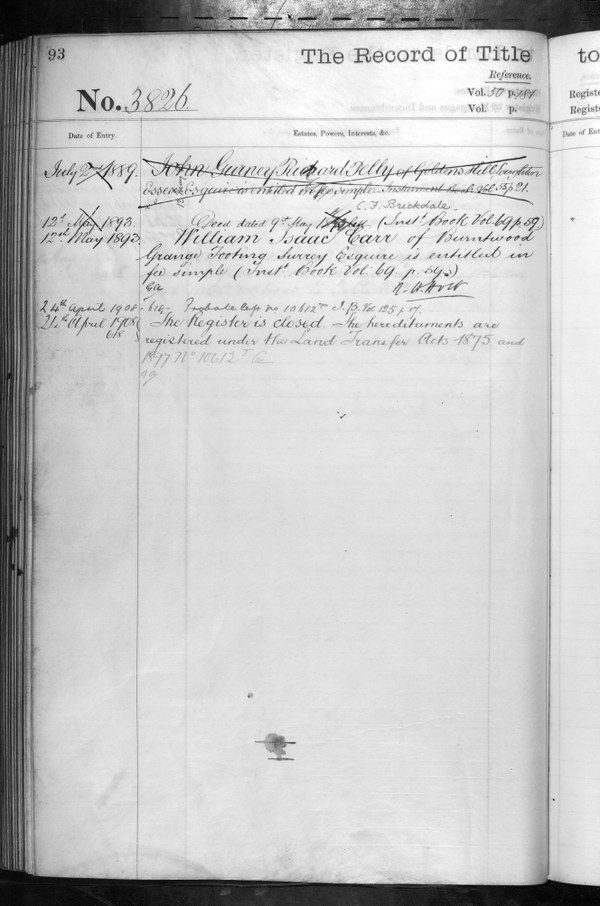 93
The Record of Title
Reference.
No. 3826.
Vol. 50 p. 184
Vol. p.
Date of Entry.
Estates, Powers, Interests, &c.
July 1889. John Gurney Pelly of Goldens Hill Loughton
Essex Esquire is entitled in fee simple. Instrument Book Vol 55 p 21.
C. F. Brickdale
12th May 1893. Deed dated 9th May (Inst. Book Vol 69 p. 59)
12th May 1893 William Isaac Carr of Burntwood
Grange Tooting Surrey Esquire is entitled in
fee simple (Inst. Book Vol. 69. p. 59.)
24th April 1908 618 Probate no 10612 I. B. Vol 125 p
24th April 1908 The Register is closed. The hereditaments are
618
registered under the Land Transfer Acts 1875 and
1897 No 10612
to
Register
Register
Date of Ent